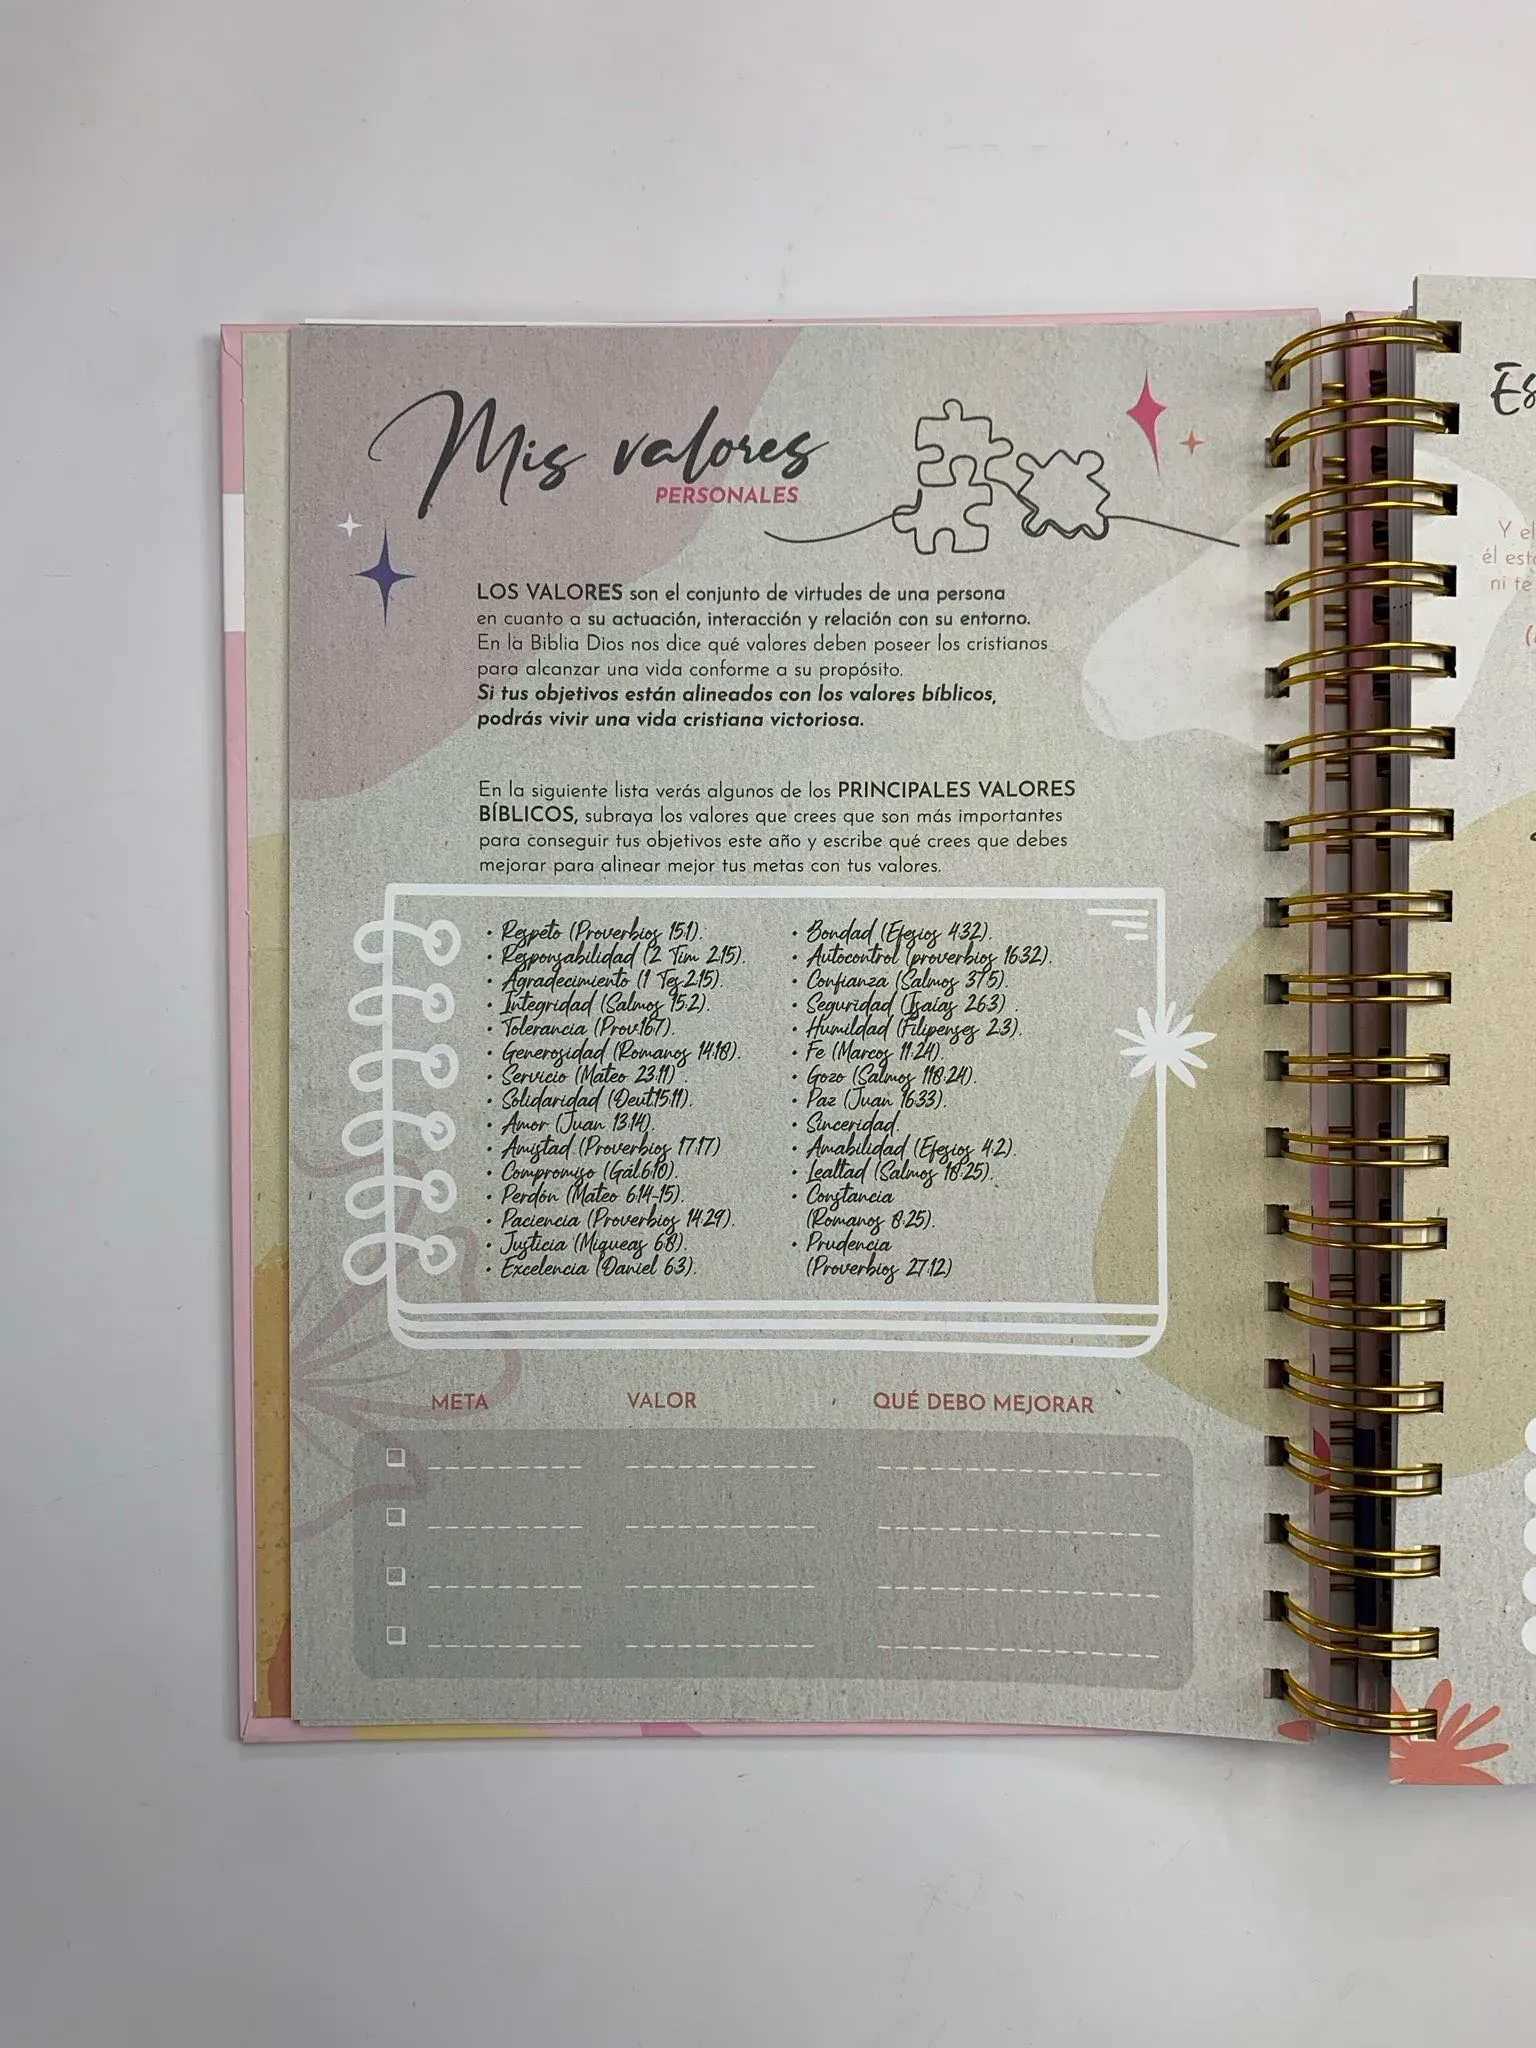 Mis valores
PERSONALES
LOS VALORES son el conjunto de virtudes de una persona
en cuanto a su actuación, interacción y relación con su entorno.
En la Biblia Dios nos dice qué valores deben poseer los cristianos
para alcanzar una vida conforme a su propósito.
Si tus objetivos están alineados con los valores bíblicos,
podrás vivir una vida cristiana victoriosa.
En la siguiente lista verás algunos de los PRINCIPALES VALORES
BÍBLICOS, subraya los valores que crees que son más importantes
para conseguir tus objetivos este año y escribe qué crees que debes
mejorar para alinear mejor tus metas con tus valores.
• Respeto (Proverbios 15:1).
• Responsabilidad (2 Tim 2:15).
• Agradecimiento (1 Tes.2:15).
• Integridad (Salmos 15:2).
• Tolerancia (Prov.16:7).
• Generosidad (Romanos 14:18).
• Servicio (Mateo 23:11)
• Solidaridad (Deut.15:11).
• Amor (Juan 13:14).
• Amistad (Proverbios 17:17)
• Compromiso (Gál.6:10).
• Perdón (Mateo 6:14-15).
• Paciencia (Proverbios 14:29).
• Justicia (Miqueas 6:8).
• Excelencia (Daniel 6:3).
• Bondad (Efesios 4:32).
• Autocontrol (proverbios 16:32).
• Confianza (Salmos 37:5).
• Seguridad (Isaías 26:3) .
• Humildad (Filipenses 2:3).
• Fe (Marcos 11:24).
• Gozo (Salmos 118:24).
• Paz (Juan 16:33).
• Sinceridad.
• Amabilidad (Efesios 4:2).
• Lealtad (Salmos 18:25).
• Constancia
(Romanos 8:25).
• Prudencia
(Proverbios 27:12)
META VALOR QUÉ DEBO MEJORAR
Es
Y el
él est
ni te